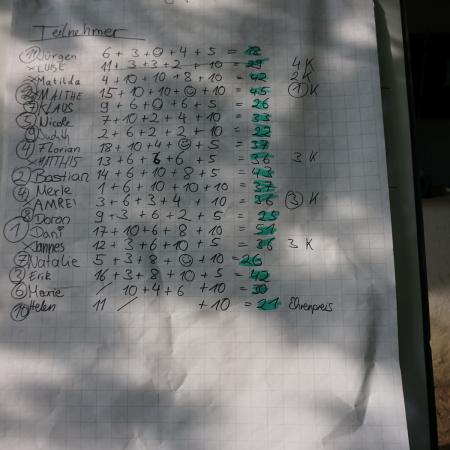 Teilnehmer
11 Jürgen 6 + 3 + 0 + 4 + 5 = 18
x LUISE 11 + 3 + 3 + 2 + 10 = 29 4 K
x Matilda 4 + 10 + 10 + 8 + 10 = 42 2 K
MALTHE 15 + 10 + 10 + 0 + 10 = 45 1 K
7 KLAUS 9 + 6 + 0 + 6 + 5 = 26
5 Nicole 7 + 10 + 2 + 4 + 10 = 33
9 Judith 2 + 6 + 2 + 2 + 10 = 22
4 Florian 18 + 10 + 4 + 0 + 5 = 37
x MATTHIS 13 + 6 + 6 + 6 + 5 = 36 3 K
2 Bastian 14 + 6 + 10 + 8 + 5 = 43
4 Merle 1 + 6 + 10 + 10 + 10 = 37
x AMREI 3 + 6 + 3 + 4 + 10 = 36 3 K
8 Doron 9 + 3 + 6 + 2 + 5 = 25
1 Dani 17 + 10 + 6 + 8 + 10 = 51
x Jannes 12 + 3 + 6 + 10 + 5 = 36 3 K
7 Natalie 5 + 3 + 8 + 0 + 10 = 26
3 Erik 16 + 3 + 8 + 10 + 5 = 42
6 Marie / 10 + 4 + 6 + 10 = 30
10 Helen 11 / + 10 = 21 Ehrenpreis